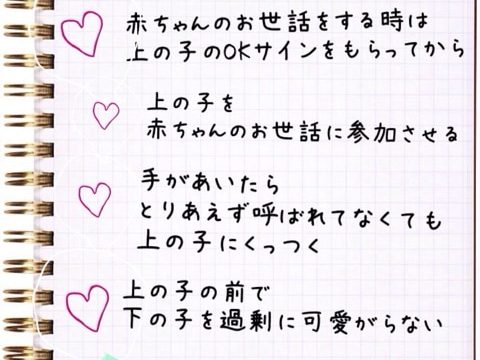 赤ちゃんのお世話をする時は
上の子のOKサインをもらってから
上の子を
赤ちゃんのお世話に参加させる
手があいたら
とりあえず呼ばれてなくても
上の子にくっつく
上の子の前で
下の子を過剰に可愛がらない